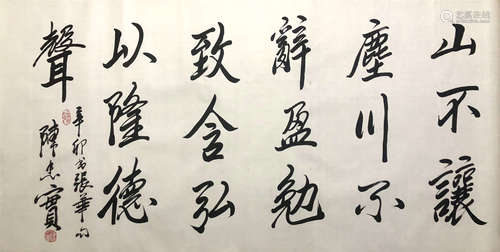 山不讓
塵川不
辭盈勉
致含弘
以隆德
聲
辛卯书張華句
陳忠實